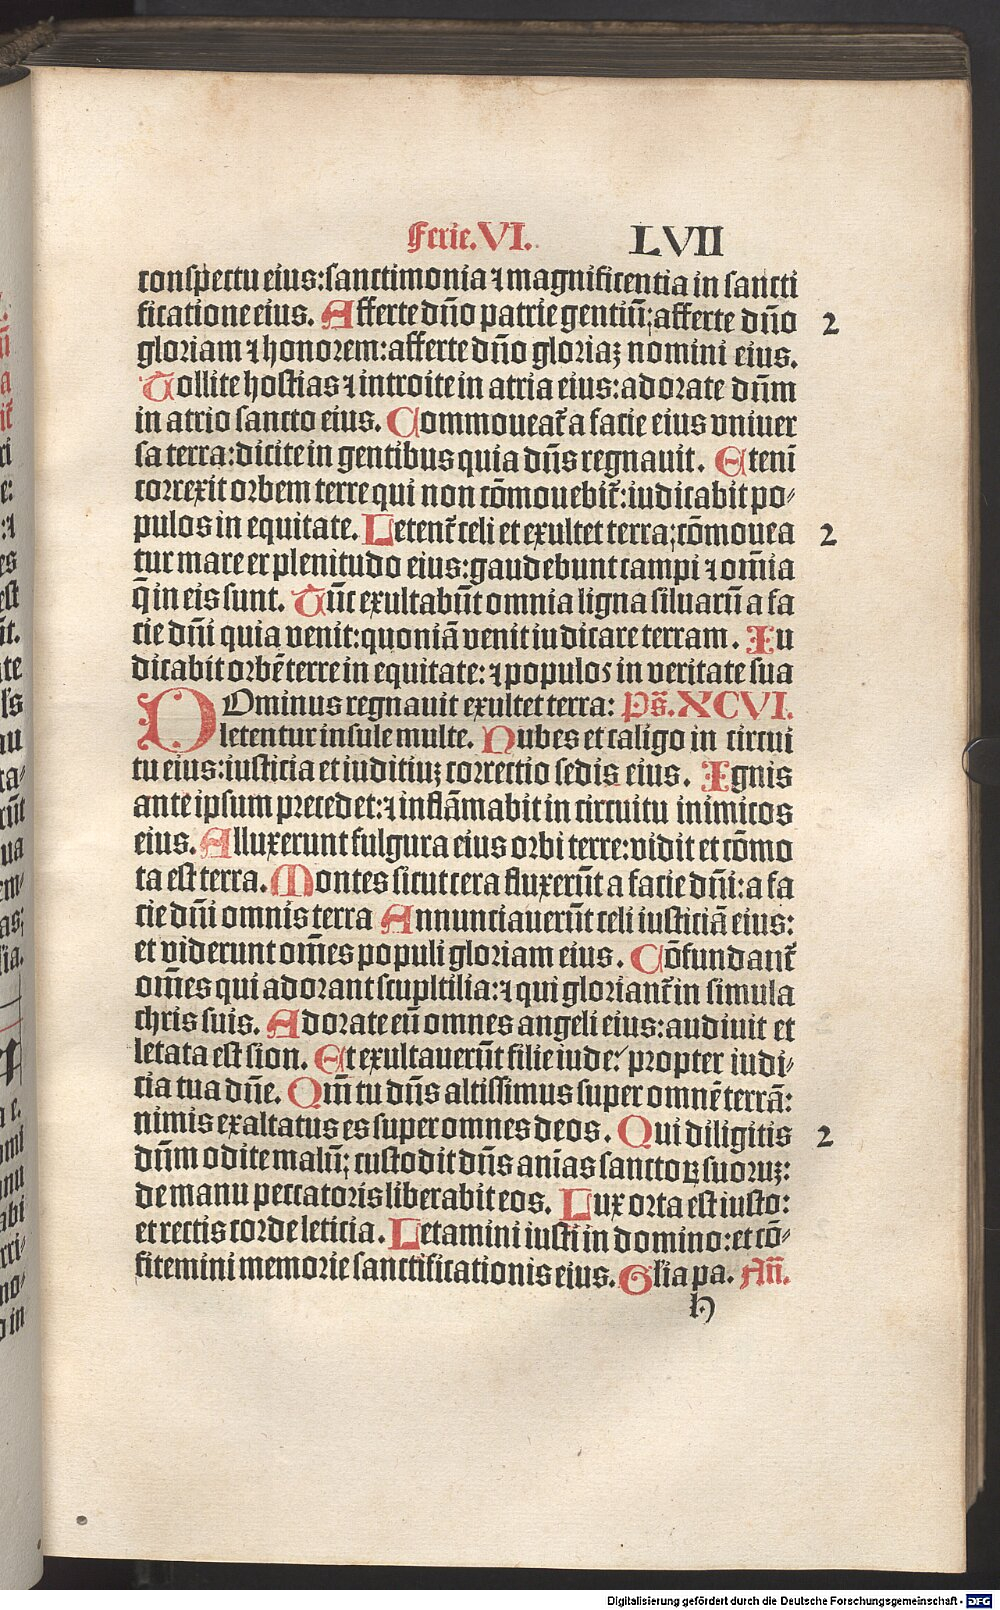 Ferie.VI. LVII
conspectu eius:sanctimonia ⁊ magnificentia in sancti
ficatione eius. Afferte dño patrie gentiū; afferte dño 2
gloriam ⁊ honorem:afferte dño gloriaꝫ nomini eius.
Tollite hostias ⁊ introite in atria eius:adorate dñm
in atrio sancto eius. Commoueat᷑ a facie eius vniuer
sa terra:dicite in gentibus quia dñs regnauit. Eteni
correxit orbem terre qui non cōmouebit᷑:iudicabit po⸗
pulos in equitate. Letent᷑ celi et exultet terra;cōmouea 2
tur mare er plenitudo eius:gaudebunt campi ⁊ om̄ia
q̄ in eis sunt. Tūc exultabūt omnia ligna siluarū a fa
cie dñi quia venit:quoniā venit iudicare terram. Iu
dicabit orbē terre in equitate:⁊ populos in veritate sua
DOminus regnauit exultet terra: Ps̄.XCVI.
letentur insule multe. Nubes et caligo in circui
tu eius:iusticia et iuditiuꝫ correctio sedis eius. Ignis
ante ipsum precedet:⁊ inflāmabit in circuitu inimicos
eius. Alluxerunt fulgura eius orbi terre:vidit et cōmo
ta est terra. Montes sicut cera fluxerūt a facie dñi:a fa
cie dñi omnis terra Annunciauerūt celi iusticiā eius:
et viderunt om̄es populi gloriam eius. Cōfundant᷑
om̄es qui adorant scupltilia:⁊ qui gloriant᷑ in simula
chris suis. Adorate eū omnes angeli eius:audiuit et
letata est sion. Et exultauerūt filie iude:propter iudi⸗
cia tua dn̄e. Qm̄ tu dñs altissimus super omnē terrā:
nimis exaltatus es super omnes deos. Qui diligitis 2
dñm odite malū; custodit dñs anīas sanctoꝝ suoruꝫ:
de manu peccatoris liberabit eos. Lux orta est iusto:
et rectis corde leticia. Letamini iusti in domino:et cō⸗
fitemini memorie sanctificationis eius. Glia pa. Añ.
h
Digitalisierung gefördert durch die Deutsche Forschungsgemeinschaft - DFG